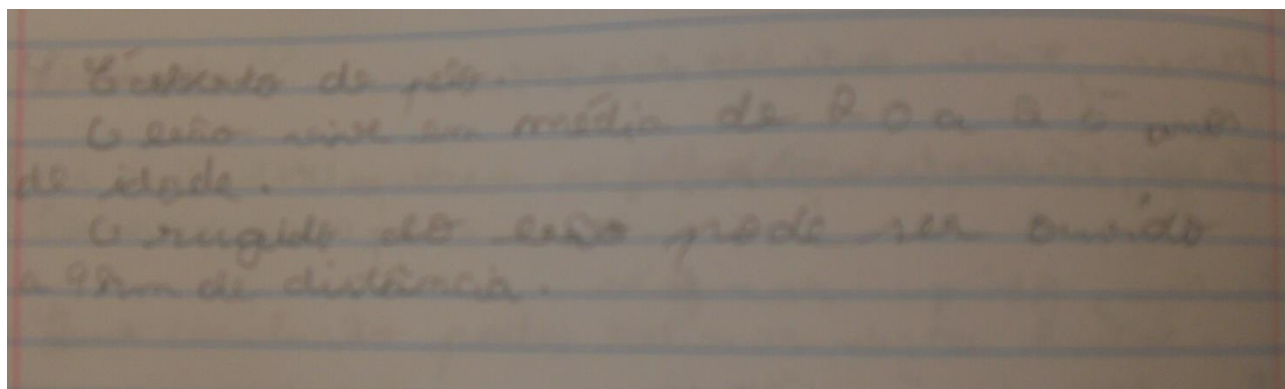 É coberto de pelo.
O leão vive em média de 20 a 25 anos
de idade.
O rugido do leão pode ser ouvido
a 9km de distância.